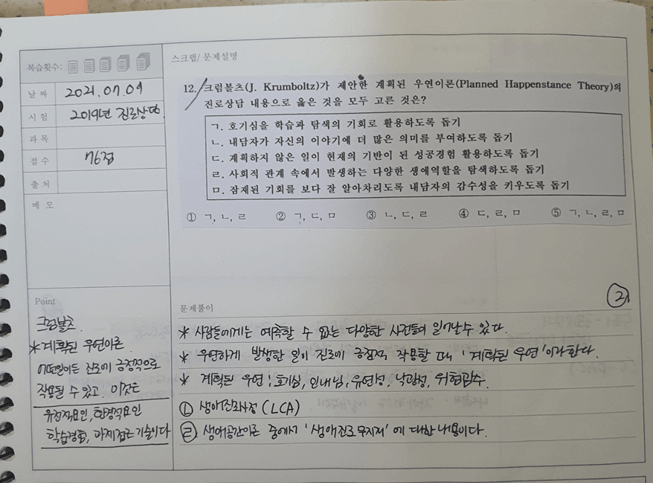 복습횟수:
날 짜 2021.07.09
시 험 2019년 진로상담
과 목
점 수 76점
출 처
메 모
스크랩/ 문제설명
12. 크럼볼츠(J. Krumboltz)가 제안한 계획된 우연이론(Planned Happenstance Theory)의
진로상담 내용으로 옳은 것을 모두 고른 것은?
ㄱ. 호기심을 학습과 탐색의 기회로 활용하도록 돕기
ㄴ. 내담자가 자신의 이야기에 더 많은 의미를 부여하도록 돕기
ㄷ. 계획하지 않은 일이 현재의 기반이 된 성공경험 활용하도록 돕기
ㄹ. 사회적 관계 속에서 발생하는 다양한 생애역할을 탐색하도록 돕기
ㅁ. 잠재된 기회를 보다 잘 알아차리도록 내담자의 감수성을 키우도록 돕기
① ㄱ, ㄴ, ㄹ ② ㄱ, ㄷ, ㅁ ③ ㄴ, ㄷ, ㄹ ④ ㄷ, ㄹ, ㅁ ⑤ ㄱ, ㄴ, ㄹ, ㅁ
Point
크럼볼츠.
* 계획된 우연이론
어떤일이든 진로에 긍정적으로
작용될 수 있고. 이것은
유전적요인, 환경적요인
학습경험, 과제접근기술이다
문제풀이
②
* 사람들에게는 예측할 수 없는 다양한 사건들이 일어날 수 있다.
* 우연하게 발생한 일이 진로에 긍정적 작용할 때 '계획된 우연'이라한다.
* 계획된 우연 : 호기심, 인내심, 유연성, 낙관성, 위험감수.
ⓛ 생애진로사정 (LCA)
㉣ 생애공간이론 중에서 '생애진로무지개'에 대한 내용이다.